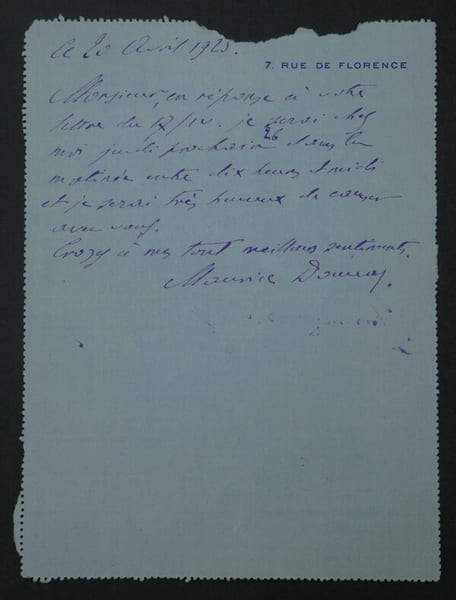 Ce 20 Avril 1923.
7. RUE DE FLORENCE
Monsieur, en réponse à votre
lettre du 17/IV. je serai chez
moi jeudi prochain 26 dans la
matinée entre dix heures et midi
et je serai très heureux de causer
avec vous.
Croyez à mes tout meilleurs sentiments.
Maurice Donnay.